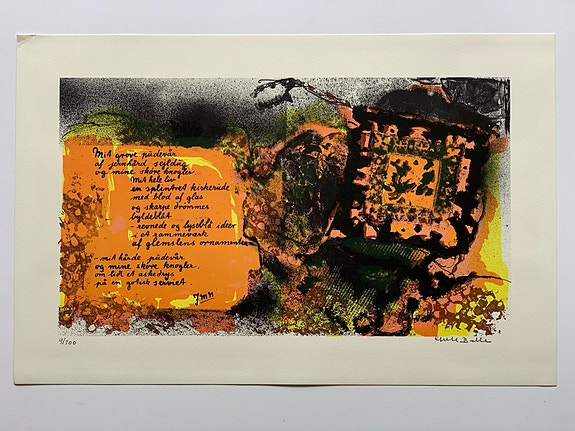 Mit grove pudevår
af jernhård sejldug
og mine skøre knogler...
Mit hele liv
en splintret kirkerude
med blod af glas
og skarpe drømmer
byldeblåt
- revnede og lyseblå ideer
i et rammeværk
af glemslens ornamenter
- mit hårde pudevår
og mine skøre knogler...
om lidt et askedrys
på en gotisk serviet.
9/100